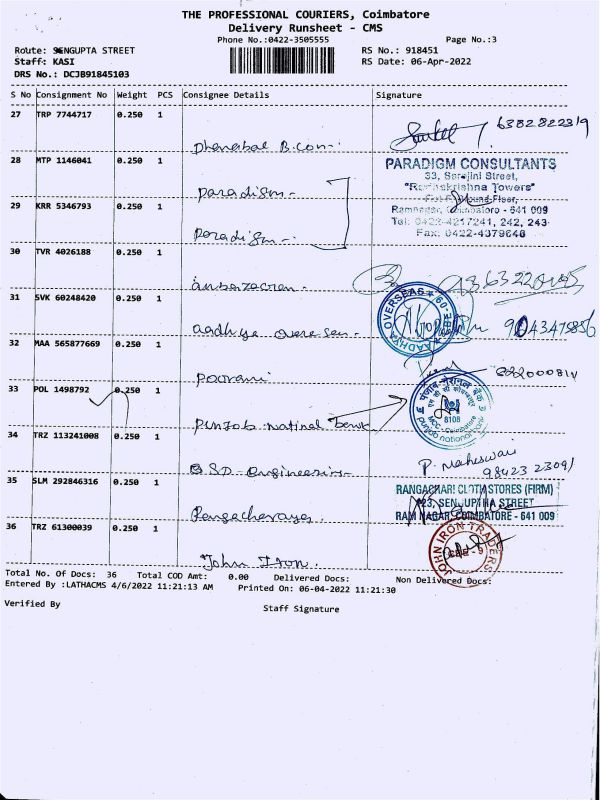 THE PROFESSIONAL COURIERS, Coimbatore
Delivery Runsheet - CMS
Phone No.:0422-3505555
Page No.:3
Route: SENGUPTA STREET
RS No.: 918451
Staff: KASI
RS Date: 06-Apr-2022
DRS No.: DCJB91845103
S No Consignment No Weight PCS Consignee Details Signature
27 TRP 7744717 0.250 1
6382822319
Dhanabal B.Com
28 MTP 1146041 0.250 1
PARADIGM CONSULTANTS
33, Sarojini Street,
"Radhakrishna Towers"
Paradism
Floor,
29 KRR 5346793 0.250 1
Ramnagar, Coimbatore - 641 009
Tel: 0422-4217241, 242, 243
Paradism
Fax: 0422-4379646
30 TVR 4026188 0.250 1
31 SVK 60248420 0.250 1
AADHYA OVERSEAS
aadhya oversea
32 MAA 565877669 0.250 1
Poorani
33 POL 1498792 0.250 1
पंजाब नैशनल बैंक
6108
MCC - Coimbatore
punjab national bank
Punjab National bank
34 TRZ 113241008 0.250 1
P. Maheswari
98423 23091
G.S.D. engineering
35 SLM 292846316 0.250 1
RANGACHARI CLOTH STORES (FIRM)
123, SENGUPTHA STREET
RAM NAGAR, COIMBATORE - 641 009
36 TRZ 61300039 0.250 1
JOHN IRON TRADERS
CBE - 9
John Iron.
Total No. Of Docs: 36 Total COD Amt: 0.00 Delivered Docs: Non Delivered Docs:
Entered By :LATHACMS 4/6/2022 11:21:13 AM Printed On: 06-04-2022 11:21:30
Verified By
Staff Signature